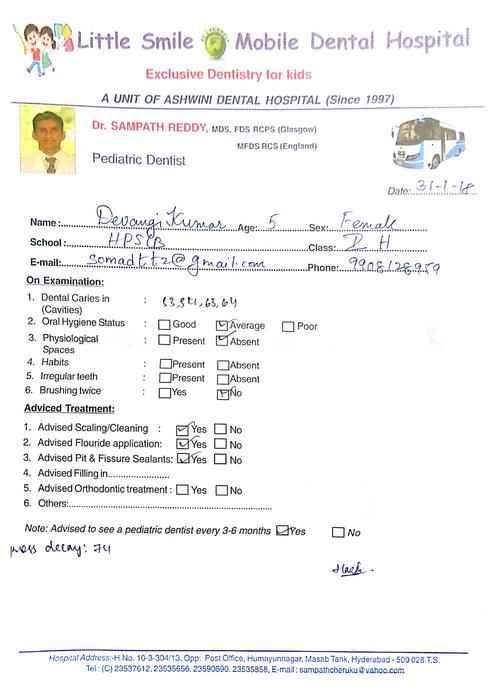 Little Smile Mobile Dental Hospital
Exclusive Dentistry for kids
A UNIT OF ASHWINI DENTAL HOSPITAL (Since 1997)
Dr. SAMPATH REDDY, MDS, FDS RCPS (Glasgow)
MFDS RCS (England)
Pediatric Dentist
Date: 31-1-18
Name: Devangi Kumar Age: 5 Sex: Female
School: HPS(B Class: I H
E-mail: somadtt2@gmail.com Phone: 9908128959
On Examination:
1. Dental Caries in (Cavities) : 63, 64
2. Oral Hygiene Status : Good Average Poor
3. Physiological Spaces : Present Absent
4. Habits : Present Absent
5. Irregular teeth : Present Absent
6. Brushing twice : Yes No
Adviced Treatment:
1. Advised Scaling/Cleaning : Yes No
2. Advised Flouride application: Yes No
3. Advised Pit & Fissure Sealants: Yes No
4. Advised Filling in
5. Advised Orthodontic treatment : Yes No
6. Others:
Note: Advised to see a pediatric dentist every 3-6 months Yes No
decay: 74
Hospital Address:-H.No. 10-3-304/13, Opp: Post Office, Humayunnagar, Masab Tank, Hyderabad - 500 028.T.S.
Tel : (C) 23537612, 23535656, 23590690, 23535858, E-mail : sampathcheruku@yahoo.com